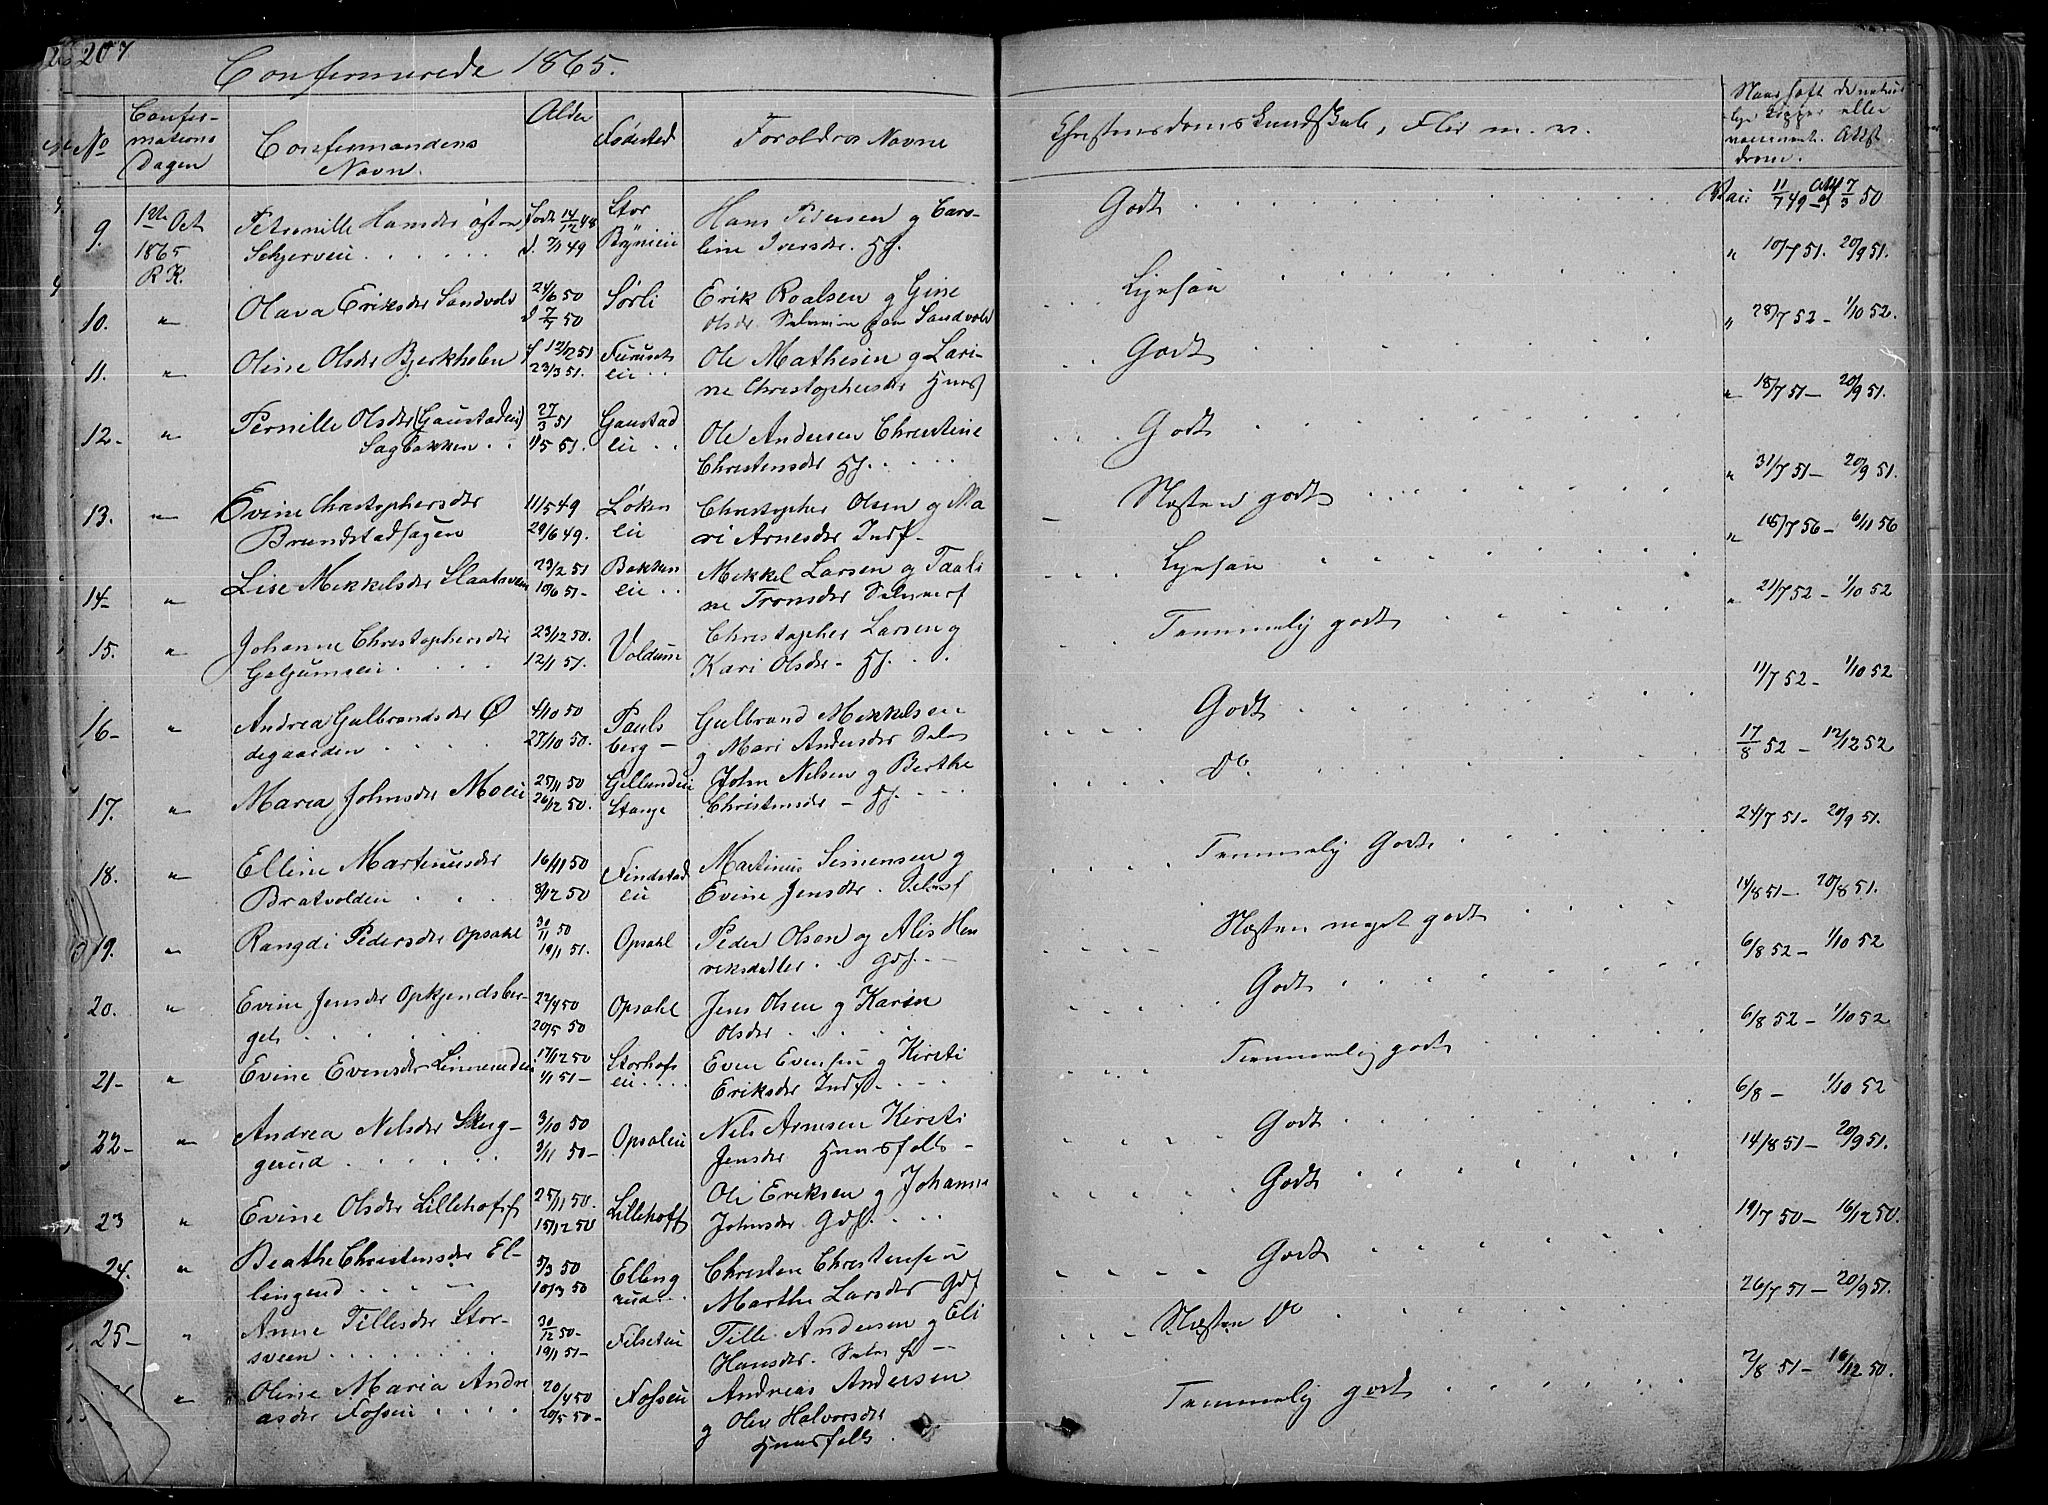 207
Confirmerede 1865.
No
Confir-
mations
Dagen
Confirmandens
Navn.
Alder
Fødested
Foreldre Navne
Christendomskundskab, Flid m. v.
9.
1ste Oct
1865
R K.
Petronille Hansdr
Født 14/12 48
d. 7/1 49
Stor
Hans Pedersen g Caro-
line Iversdr. Hf.
Godt
Vac: 11/7 49 7/3 50
10.
"
Olava Eriksdr Sandvold
24/6 50
d 7/7 50
Sørli
Erik Roalsen g Gine
Olsdr. paa Sandvold
" 10/7 51. 20/9 51.
11.
"
Oline Olsdr Bjerkholen
f 12/12 51
23/3 51.
Furuset
eie
Ole Mathesen g Lari-
ne Christophersdr Huusf
Godt
" 28/7 52 – 1/10 52.
12-
"
Pernille Olsdr (Gaustadeie)
Sagbakken
27/3 51
1/5 51.
Gaustad
eie
Ole Andersen Christine
Christensdr Hf.
Godt
" 18/7 51 – 20/9 51.
13.
"
Evine Christophersdr
Brundstadhagen
11/5 49
29/6 49.
Løken
eie
Christopher Olsen g Ma
ri Arnesdr Indf
Næsten godt
" 31/7 51 – 20/9 51.
14-
"
Lise Mekkelsdr Slaatsveen
23/2 51
10/6 51-
Bakken
eie
Mekkel Larsen og Taali
ne Tronsdr
" 18/7 56 – 6/11 56
15.
"
Johanne Christophersdr
23/12 50.
12/1 51.
Voldum
Christopher Larsen g
Kari Olsdr - Hf.
Temmelig godt
" 21/7 52 – 1/10 52
16-
"
Andrea Gulbrandsdr Ø
degaarden
4/10 50
27/10 50.
Pauls
berg-
Gulbrand Mekkelsen
g Mari Andersdr
Godt
11/7 52 – 1/10 52
17.
"
Maria Johnsdr Moeie
25/11 50
26/12 50.
Gillundeie
Stange
John Nilsen g Berthe
Christensdr – Hf.
Do
17/8 52 – 12/12 52
18.
"
Elline Martinusdr
Bratvolden
16/11 50
8/12 50
Findstad
eie
Martinus Simensen g
Evine Jensdr.
Temmelig Godt
24/7 51 – 20/9 51.
19.
"
Rangdi Pedersdr Opsahl
30/11 50
19/1 51.
Opsahl
Peder Olsen og Alis Hen
riksdatter Gdf.
Næsten meget godt
14/8 51 – 20/8 51.
20.
"
Evine Jensdr Opkjendsber-
get
22/4 50
20/5 50
Opsahl
Jens Olsen g Karen
Olsdr
Godt
6/8 52 – 1/10 52
21-
"
Evine Evensdr Linnerudeie
17/12 50
1/1 51-
Storhofs
eie
Even Evensen g Kirsti
Eriksdr Indf.
Temmelig godt
6/8 52 – 1/10 52
22-
"
Andrea Nelsdr Skug-
gerud
3/10 50
3/11 50-
Opsaleie
Nels Arnesen Kirsti
Jensdr Huusfolk-
Godt
6/8 – 1/10 52
23
"
Evine Olsdr Lillehoff
25/11 50.
15/12 50
Lillehoff
Ole Eriksen g Johanne
Johnsdr Gdf.
Godt
14/8 51 – 20/9 51.
24.
"
Beathe Christensdr El-
lingrud
3/3 50
10/3 50
Elling
rud
Christen Christensen
Marthe Larsdr Gdf
Godt
19/7 50 – 16/12 50.
25-
"
Anne Tillesdr Stor-
sveen
30/12 50-
19/1 51-
Filseteie
Tille Andersen g Eli
Hansdr.
Næsten Do
26/7 51 – 20/9 51.
"
Oline Maria Andre
asdr Fosseie
20/4 50
20/5 50-
Fosseie
Andreas Andersen
g Olea Halvorsdr
Huusfolk
Temmelig godt
2/8 51 – 16/12 50.